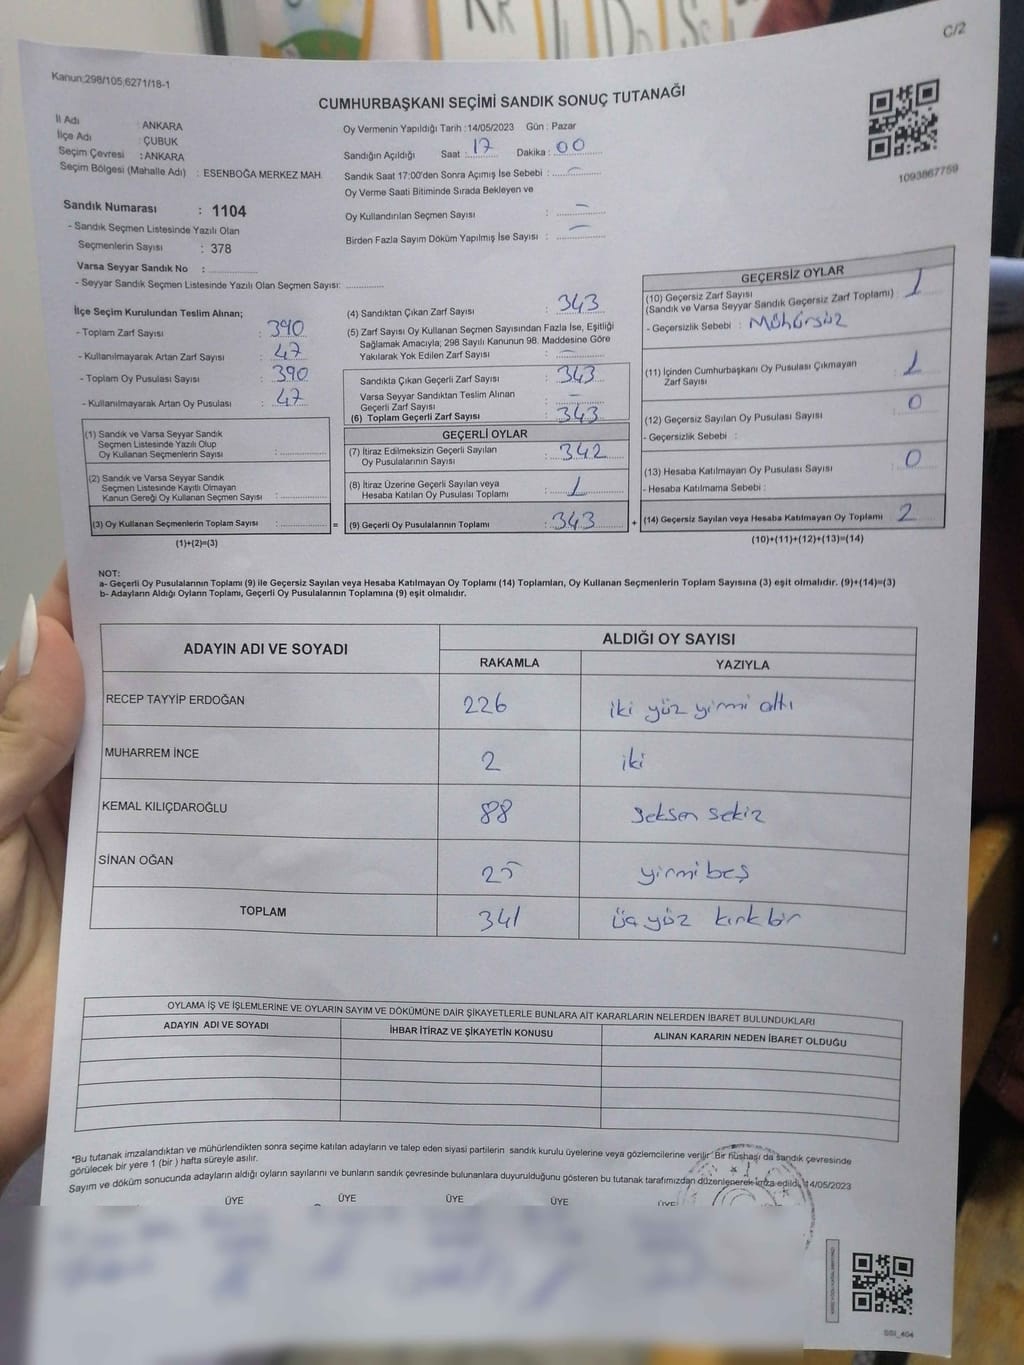 C/2
Kanun;298/105;6271/18-1
CUMHURBAŞKANI SEÇİMİ SANDIK SONUÇ TUTANAĞI
İl Adı : ANKARA
İlçe Adı : ÇUBUK
Seçim Çevresi : ANKARA
Seçim Bölgesi (Mahalle Adı) : ESENBOĞA MERKEZ MAH.
Sandık Numarası : 1104
- Sandık Seçmen Listesinde Yazılı Olan
Seçmenlerin Sayısı : 378
Varsa Seyyar Sandık No :
- Seyyar Sandık Seçmen Listesinde Yazılı Olan Seçmen Sayısı:
Oy Vermenin Yapıldığı Tarih :14/05/2023 Gün : Pazar
Sandığın Açıldığı Saat : 17 Dakika : 00
Sandık Saat 17:00'den Sonra Açımış İse Sebebi : -
Oy Verme Saati Bitiminde Sırada Bekleyen ve
Oy Kullandırılan Seçmen Sayısı : -
Birden Fazla Sayım Döküm Yapılmış İse Sayısı : -
1093867759
İlçe Seçim Kurulundan Teslim Alınan;
- Toplam Zarf Sayısı : 390
- Kullanılmayarak Artan Zarf Sayısı : 47
- Toplam Oy Pusulası Sayısı : 390
- Kullanılmayarak Artan Oy Pusulası : 47
(1) Sandık ve Varsa Seyyar Sandık
Seçmen Listesinde Yazılı Olup
Oy Kullanan Seçmenlerin Sayısı :
(2) Sandık ve Varsa Seyyar Sandık
Seçmen Listesinde Kayıtlı Olmayan
Kanun Gereği Oy Kullanan Seçmen Sayısı :
(3) Oy Kullanan Seçmenlerin Toplam Sayısı : =
(1)+(2)=(3)
(4) Sandıktan Çıkan Zarf Sayısı : 343
(5) Zarf Sayısı Oy Kullanan Seçmen Sayısından Fazla İse, Eşitliği
Sağlamak Amacıyla; 298 Sayılı Kanunun 98. Maddesine Göre
Yakılarak Yok Edilen Zarf Sayısı : -
Sandıkta Çıkan Geçerli Zarf Sayısı : 343
Varsa Seyyar Sandıktan Teslim Alınan
Geçerli Zarf Sayısı : -
(6) Toplam Geçerli Zarf Sayısı : 343
GEÇERLİ OYLAR
(7) İtiraz Edilmeksizin Geçerli Sayılan
Oy Pusulalarının Sayısı : 342
(8) İtiraz Üzerine Geçerli Sayılan veya
Hesaba Katılan Oy Pusulası Toplamı : 1
(9) Geçerli Oy Pusulalarının Toplamı : 343 +
GEÇERSİZ OYLAR
(10) Geçersiz Zarf Sayısı
(Sandık ve Varsa Seyyar Sandık Geçersiz Zarf Toplamı) 1
- Geçersizlik Sebebi : Mühürsüz
(11) İçinden Cumhurbaşkanı Oy Pusulası Çıkmayan
Zarf Sayısı 1
(12) Geçersiz Sayılan Oy Pusulası Sayısı 0
- Geçersizlik Sebebi :
(13) Hesaba Katılmayan Oy Pusulası Sayısı 0
- Hesaba Katılmama Sebebi :
(14) Geçersiz Sayılan veya Hesaba Katılmayan Oy Toplamı 2
(10)+(11)+(12)+(13)=(14)
NOT:
a- Geçerli Oy Pusulalarının Toplamı (9) ile Geçersiz Sayılan veya Hesaba Katılmayan Oy Toplamı (14) Toplamları, Oy Kullanan Seçmenlerin Toplam Sayısına (3) eşit olmalıdır. (9)+(14)=(3)
b- Adayların Aldığı Oyların Toplamı, Geçerli Oy Pusulalarının Toplamına (9) eşit olmalıdır.
ADAYIN ADI VE SOYADI ALDIĞI OY SAYISI
RAKAMLA YAZIYLA
RECEP TAYYİP ERDOĞAN 226 iki yüz yirmi altı
MUHARREM İNCE 2 iki
KEMAL KILIÇDAROĞLU 88 seksen sekiz
SİNAN OĞAN 25 yirmi beş
TOPLAM 341 üç yüz kırk bir
OYLAMA İŞ VE İŞLEMLERİNE VE OYLARIN SAYIM VE DÖKÜMÜNE DAİR ŞİKAYETLERLE BUNLARA AİT KARARLARIN NELERDEN İBARET BULUNDUKLARI
ADAYIN ADI VE SOYADI İHBAR İTİRAZ VE ŞİKAYETİN KONUSU ALINAN KARARIN NEDEN İBARET OLDUĞU
*Bu tutanak imzalandıktan ve mühürlendikten sonra seçime katılan adayların ve talep eden siyasi partilerin sandık kurulu üyelerine veya gözlemcilerine verilir. Bir nüshası da sandık çevresinde
görülecek bir yere 1 (bir) hafta süreyle asılır.
Sayım ve döküm sonucunda adayların aldığı oyların sayılarını ve bunların sandık çevresinde bulunanlara duyurulduğunu gösteren bu tutanak tarafımızdan düzenlenerek imza edildi. 14/05/2023
ÜYE ÜYE ÜYE ÜYE ÜYE
SSI_404